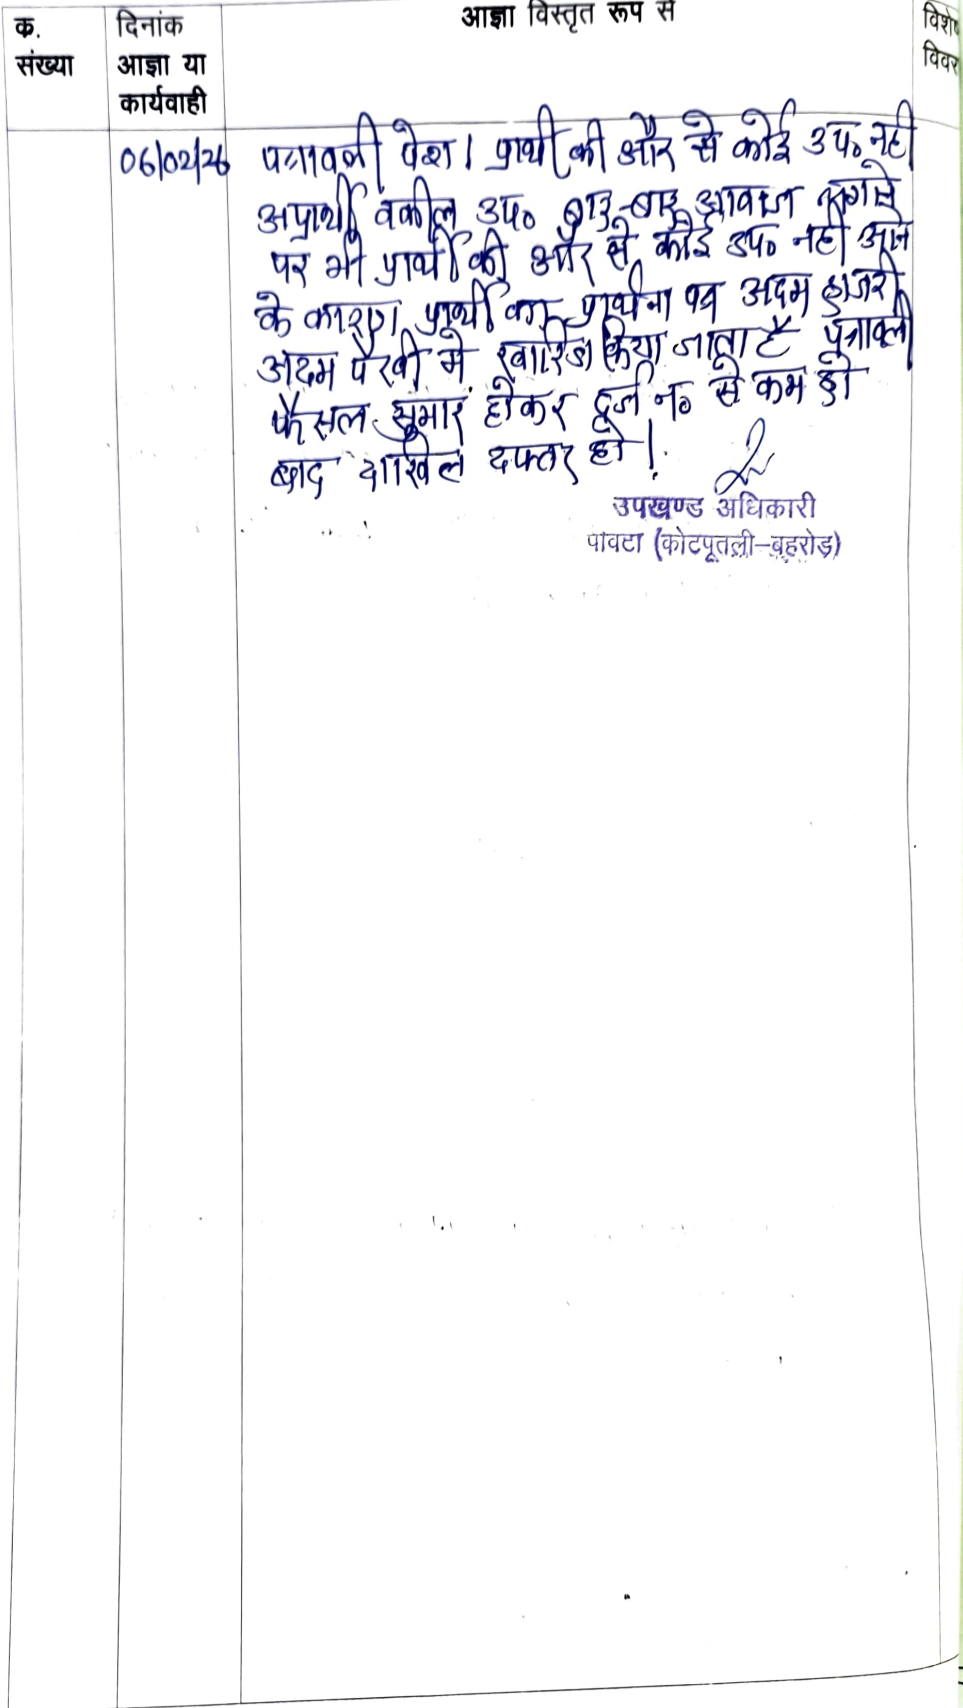 क.
संख्या
दिनांक
आज्ञा या
कार्यवाही
आज्ञा विस्तृत रूप से
विशे
विवर
06/02/26
पत्रावली पेश। प्रार्थी की और से कोई उप० नही
अप्रार्थी वकील उप० बार-बार आवाज लगाने
पर भी प्रार्थी की और से कोई उप० नही आने
के कारण प्रार्थी का प्रार्थना पत्र अदम हाजरी
अदम पैरवी मे खारिज किया जाता है पत्रावली
फैसल सुमार होकर दर्ज न० से कम हो
बाद दाखिल दफ्तर हो।
उपखण्ड अधिकारी
पावटा (कोटपूतली-बहरोड़)